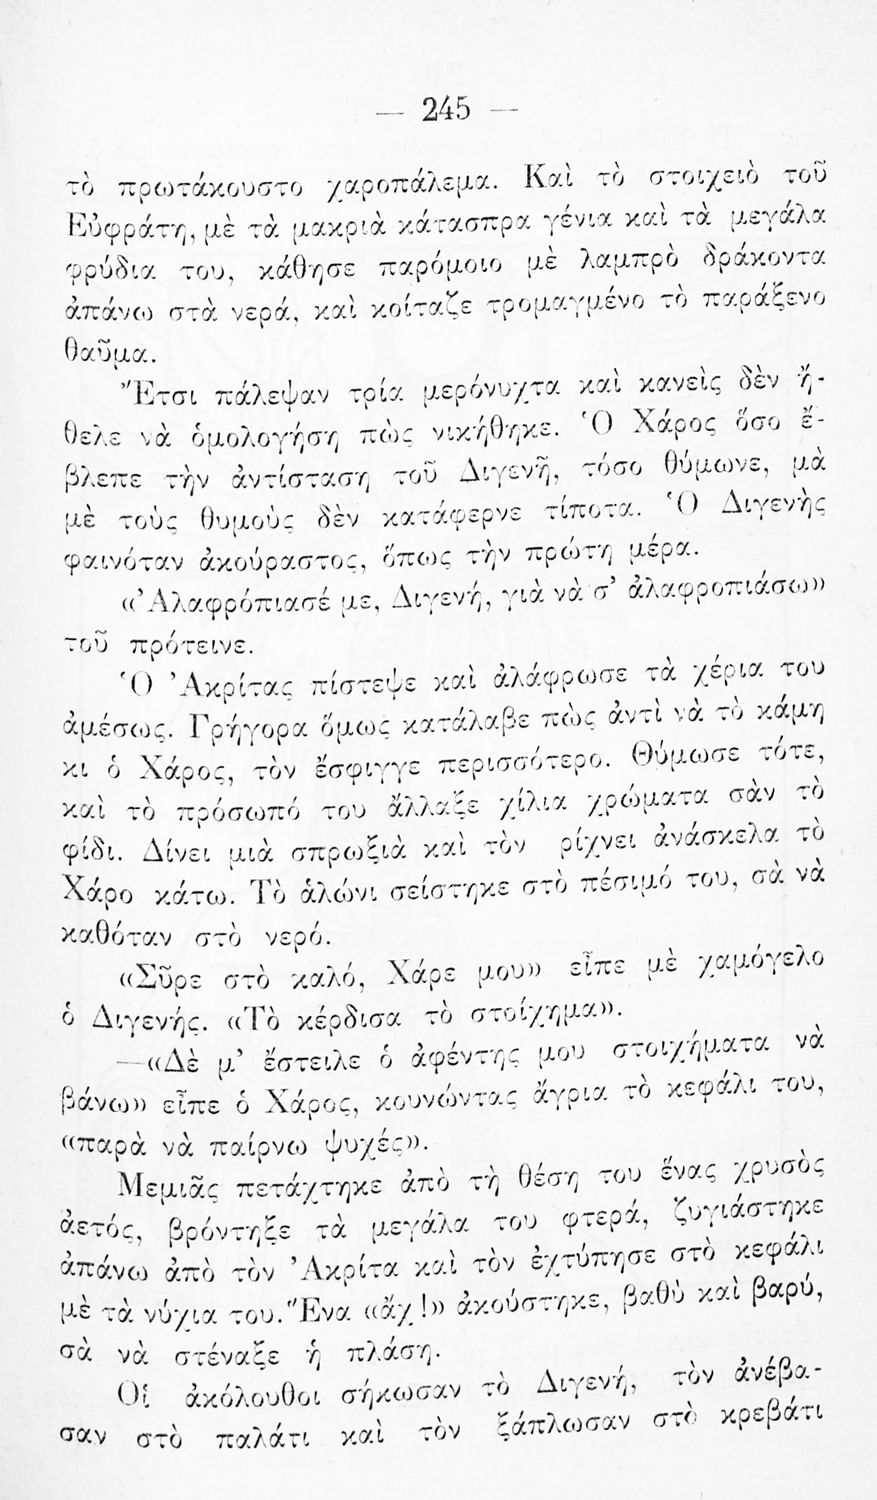 — 245 —
τὸ πρωτάκουστο χαροπάλεμα. Καὶ τὸ στοιχειὸ τοῦ
Εὐφράτη, μὲ τὰ μακριὰ κάτασπρα γένια καὶ τὰ μεγάλα
φρύδια του, κάθησε παρόμοιο μὲ λαμπρὸ δράκοντα
ἀπάνω στὰ νερά, καὶ κοίταζε τρομαγμένο τὸ παράξενο
θαῦμα.
Ἔτσι πάλεψαν τρία μερόνυχτα καὶ κανεὶς δὲν ἤ-
θελε νὰ ὁμολογήση πὼς νικήθηκε. Ὁ Χάρος ὅσο ἔ-
βλεπε τὴν ἀντίσταση τοῦ Διγενῆ, τόσο θύμωνε, μὰ
μὲ τοὺς θυμοὺς δὲν κατάφερνε τίποτα. Ὁ Διγενὴς
φαινόταν ἀκούραστος, ὅπως τὴν πρώτη μέρα.
«Ἀλαφρόπιασέ με, Διγενή, γιὰ νὰ σ' ἀλαφροπιάσω»
τοῦ πρότεινε.
Ὁ Ἀκρίτας πίστεψε καὶ ἀλάφρωσε τὰ χέρια του
ἀμέσως. Γρήγορα ὅμως κατάλαβε πὼς ἀντὶ νὰ τὸ κάμη
κι ὁ Χάρος, τὸν ἔσφιγγε περισσότερο. Θύμωσε τότε,
καὶ τὸ πρόσωπό του ἄλλαξε χίλια χρώματα σὰν τὸ
φίδι. Δίνει μιὰ σπρωξιὰ καὶ τὸν ρίχνει ἀνάσκελα τὸ
Χάρο κάτω. Τὸ ἁλώνι σείστηκε στὸ πέσιμό του, σὰ νὰ
καθόταν στὸ νερό.
«Σῦρε στὸ καλό, Χάρε μου» εἶπε μὲ χαμόγελο
ὁ Διγενής. «Τὸ κέρδισα τὸ στοίχημα».
—«Δὲ μ' ἔστειλε ὁ ἀφέντης μου στοιχήματα νὰ
βάνω» εἶπε ὁ Χάρος, κουνώντας ἄγρια τὸ κεφάλι του,
«παρὰ νὰ παίρνω ψυχές».
Μεμιᾶς πετάχτηκε ἀπὸ τὴ θέση του ἕνας χρυσὸς
ἀετός, βρόντηξε τὰ μεγάλα του φτερά, ζυγιάστηκε
ἀπάνω ἀπὸ τὸν Ἀκρίτα καὶ τὸν ἐχτύπησε στὸ κεφάλι
μὲ τὰ νύχια του. Ἕνα «ἄχ!» ἀκούστηκε, βαθὺ καὶ βαρύ,
σὰ νὰ στέναξε ἡ πλάση.
Οἱ ἀκόλουθοι σήκωσαν τὸ Διγενή, τὸν ἀνέβα-
σαν στὸ παλάτι καὶ τὸν ξάπλωσαν στὸ κρεβάτι